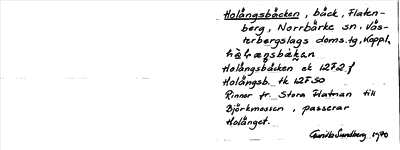 Holångsbäcken, bäck, Flaten-
berg, Norrbärke sn. Väs-
terbergslags doms.tg, Koppl.
Holångsbäcken ek 12F2 f
Holångsb. tk 12F SO
Rinner fr. Stora Flatnan till
Björkmossen, passerar
Holånget.
Gunilla Sundberg 1970